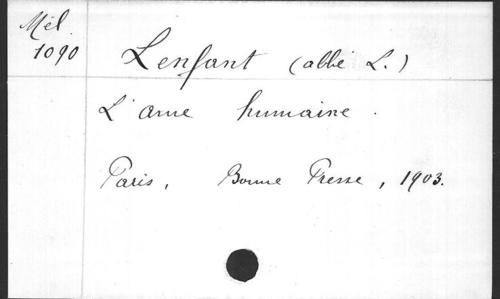 Mél.
1090
Lenfant (abbé L.)
L'ame humaine.
Paris, Bonne Presse, 1903.